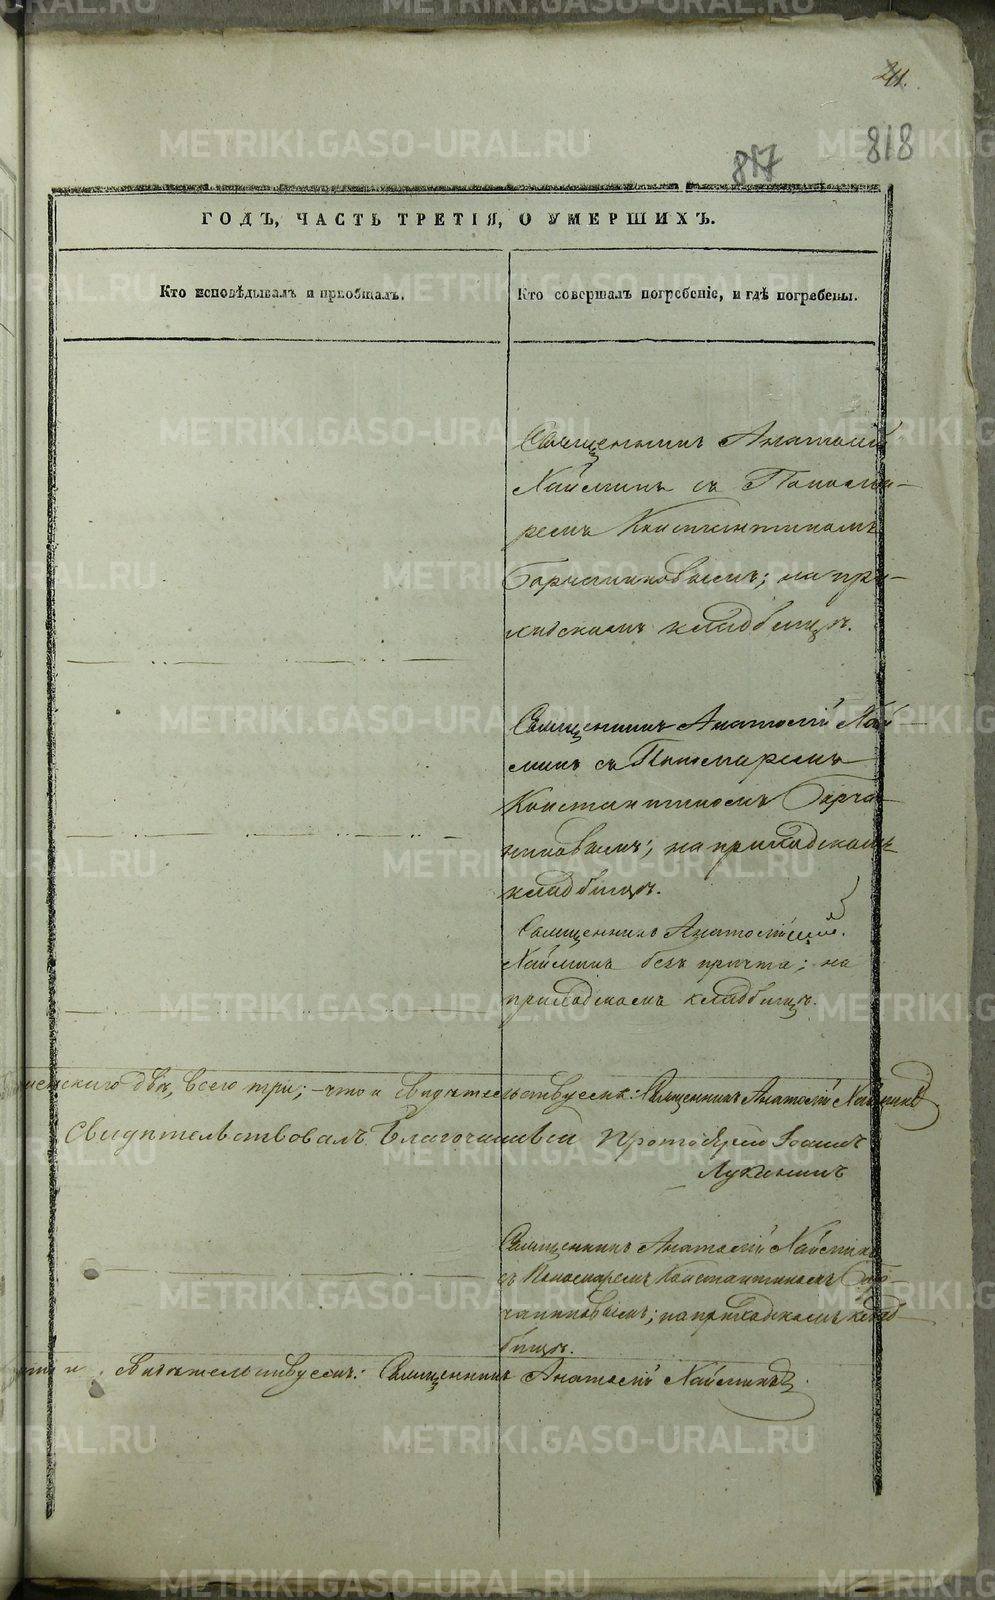 METRIKI.GASO-URAL.RU
41.
817
818
ГОДЪ, ЧАСТЬ ТРЕТІЯ, О УМЕРШИХЪ.
Кто исповѣдывалъ и пріобщалъ.
Кто совершалъ погребеніе, и гдѣ погребены.
Священникъ Анатолій
Хаймин съ Понома-
ремъ Константиномъ
на при-
кладбищѣ.
Священникъ Анатолій Хай-
мин съ Пономаремъ
Константиномъ
на приходскомъ
кладбищѣ.
Священникъ Анатолій
Хаймин безъ причта; на
приходскомъ кладбищѣ.
женскаго два, всего три; - что и свидѣтельствуемъ: Священникъ Анатолій Хаймин
Свидѣтельствовалъ Благочинный Протоіерей Іоаннъ
Лукинъ
Священникъ Анатолій Хаймин
съ Пономаремъ Константиномъ
на приходскомъ клад-
бищѣ.
и свидѣтельствуемъ: Священникъ Анатолій Хаймин